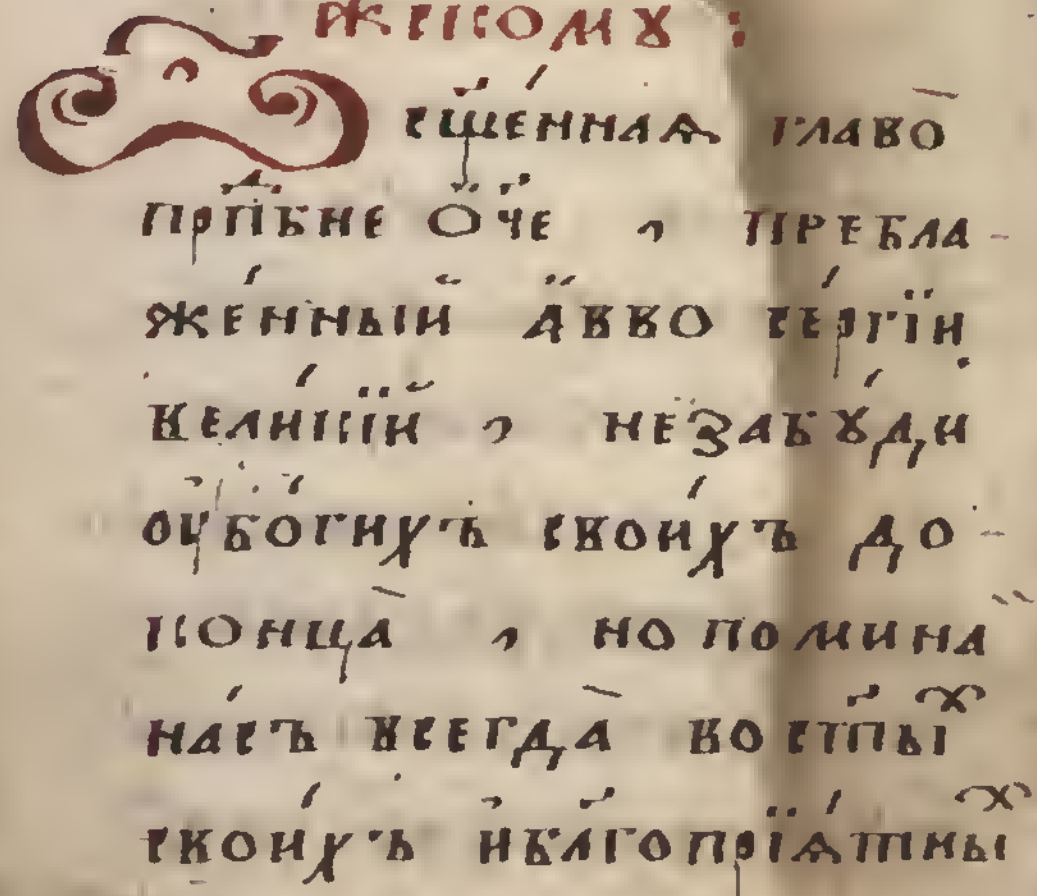 жскому :
О сщ҃е́ннаѧ главо̀
прпⷣбне ѻ҆́ч҃е , пребла-
же́нный а҆́вво се́ргїи
вели́кїй , незабꙋ́ди
ᲂу҆бо́гихъ свои́хъ до-
конца̀ , но помина̀й
на́съ всегда̀ во ст҃ыⷯ
свои́хъ и҆ бл҃гопрїѧ́тныⷯ